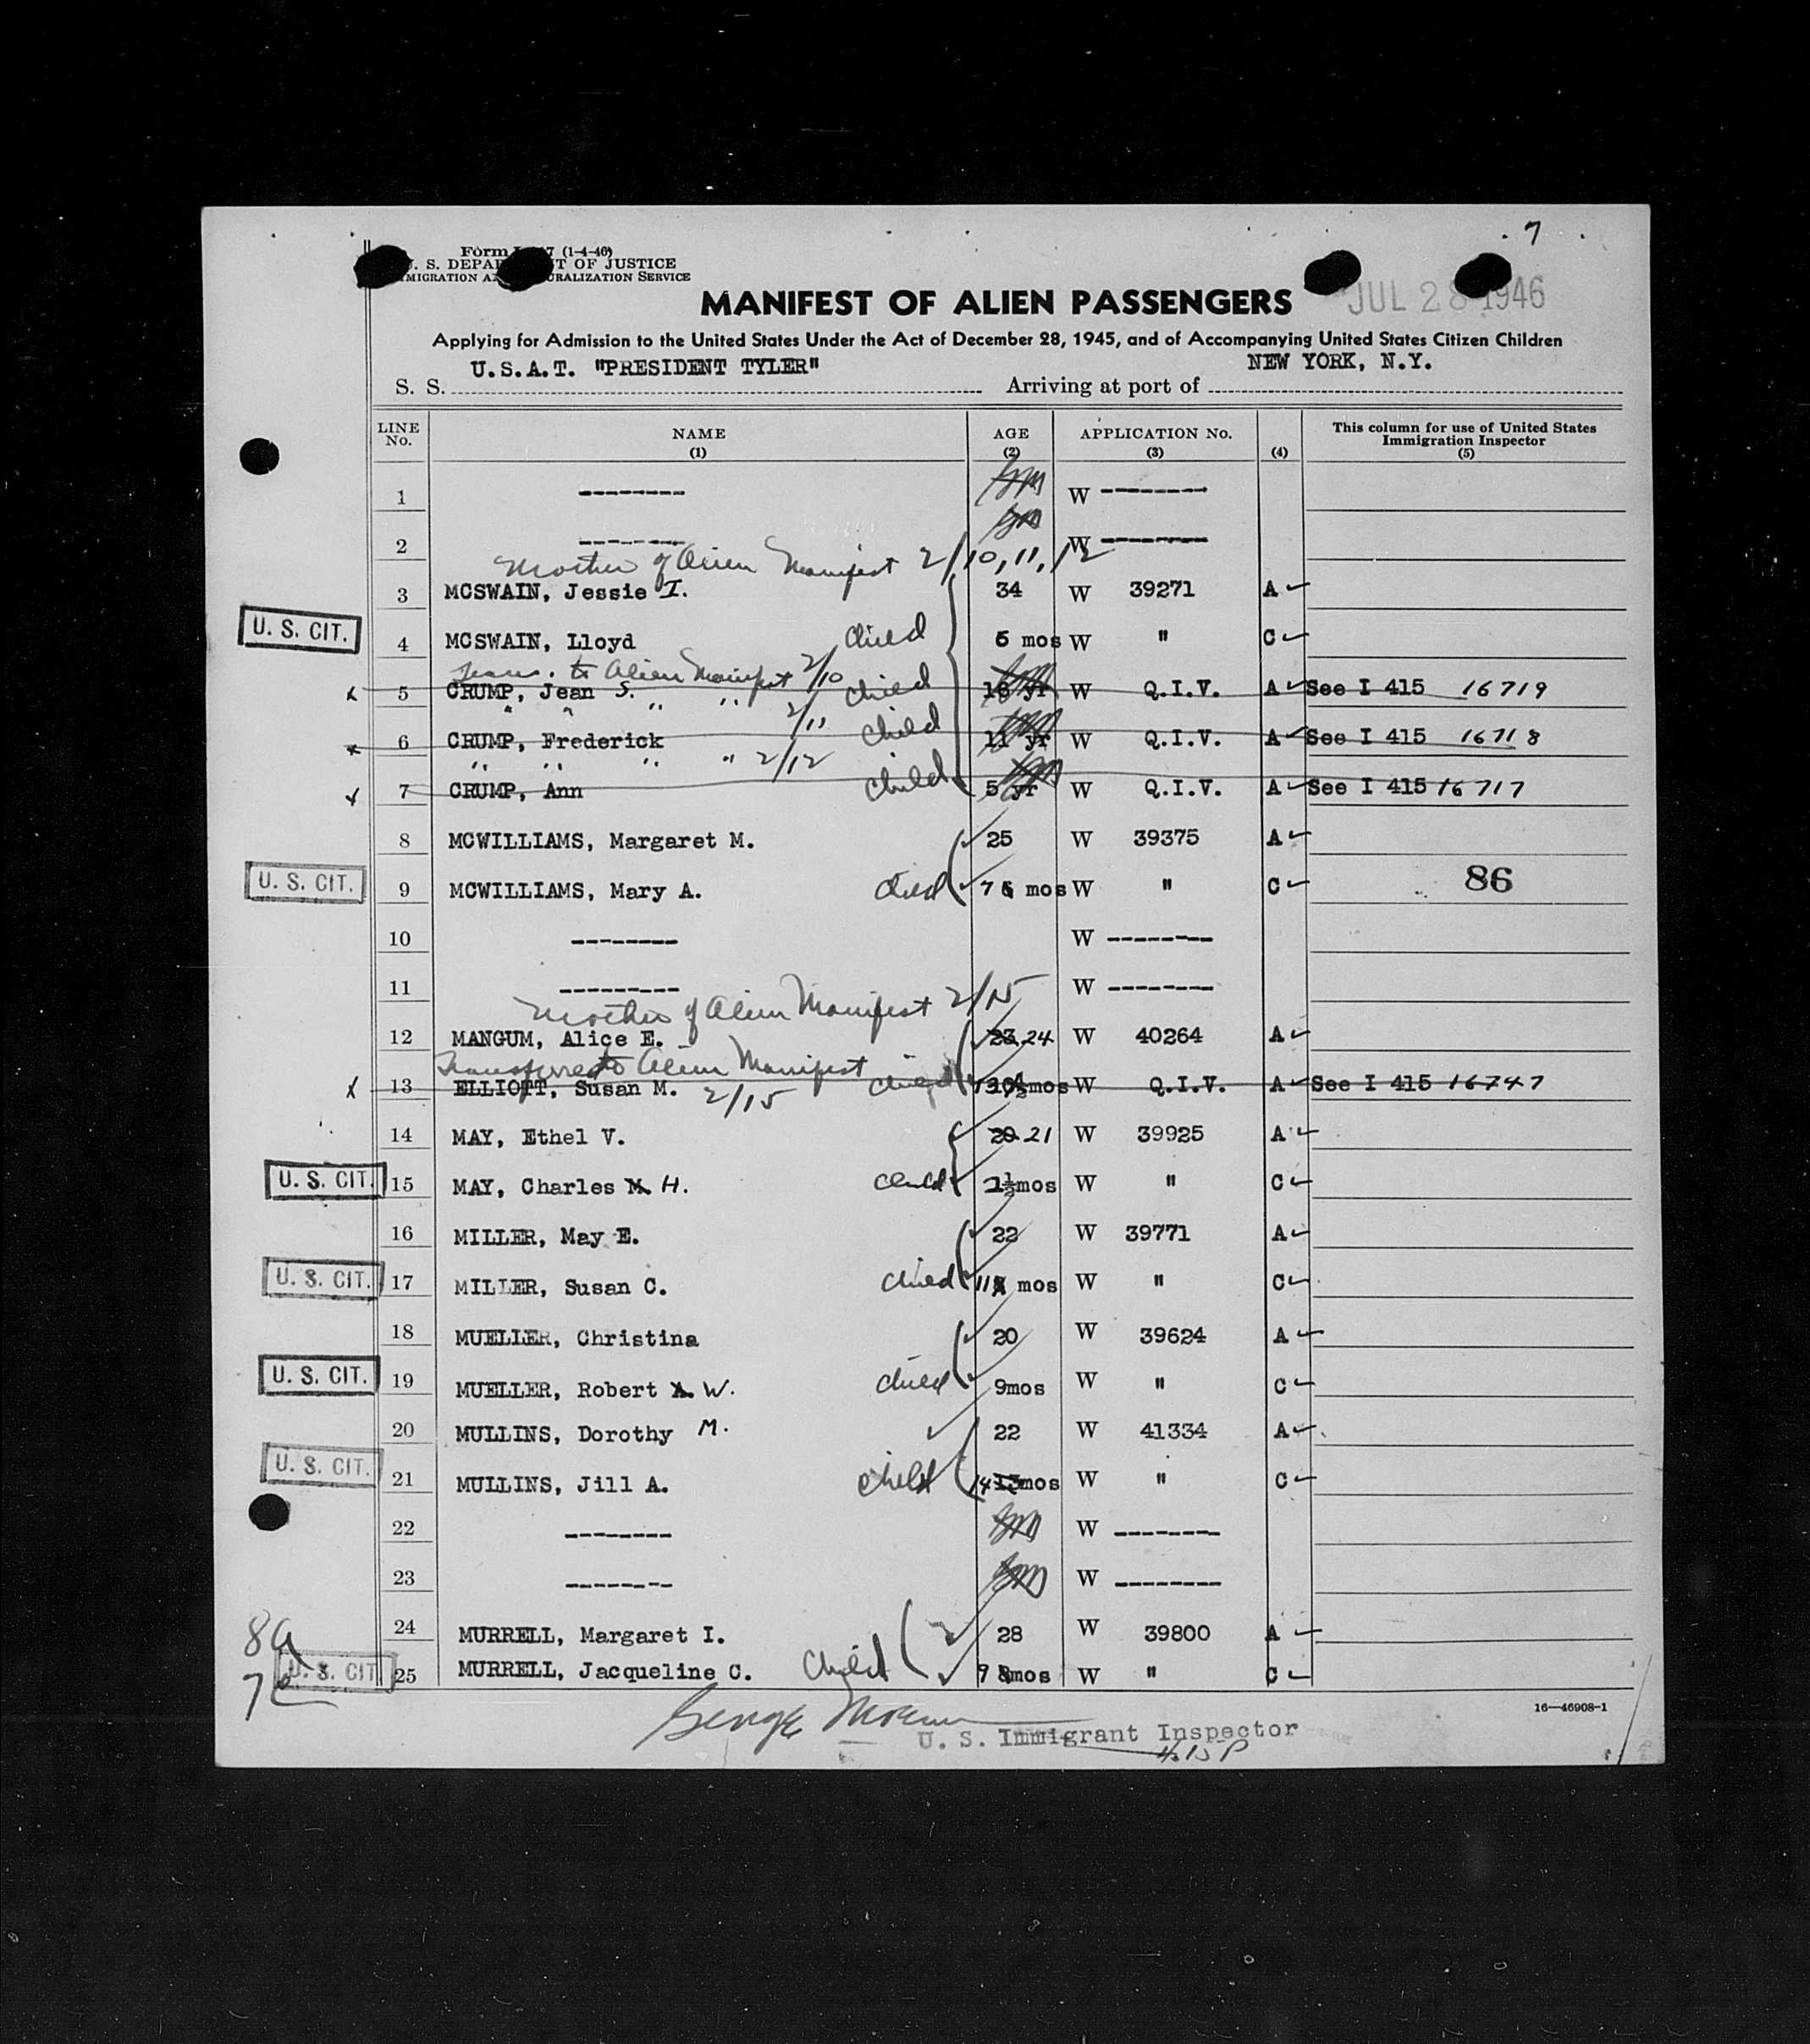 7
Form (1-4-46)
U. S. DEPARTMENT OF JUSTICE
IMMIGRATION AND NATURALIZATION SERVICE
MANIFEST OF ALIEN PASSENGERS
JUL 28 1946
Applying for Admission to the United States Under the Act of December 28, 1945, and of Accompanying United States Citizen Children
S. S. U.S.A.T. "PRESIDENT TYLER" Arriving at port of NEW YORK, N.Y.
LINE No. NAME (1) AGE (2) APPLICATION No. (3) (4) This column for use of United States Immigration Inspector (5)
1 -------- W --------
2 -------- W --------
Mother of Alien Manifest 2/10, 11, 12
3 MCSWAIN, Jessie I. 34 W 39271 A
U. S. CIT. 4 MCSWAIN, Lloyd child 5 mos W " C
Trans. to Alien Manifest 2/10
x 5 CRUMP, Jean S. child 18 yr W Q.I.V. A See I 415 16719
" " " " 2/11
x 6 CRUMP, Frederick child 11 yr W Q.I.V. A See I 415 16718
" " " " 2/12
x 7 CRUMP, Ann child 5 yr W Q.I.V. A See I 415 16717
8 MCWILLIAMS, Margaret M. 25 W 39375 A
U. S. CIT. 9 MCWILLIAMS, Mary A. child 7 mos W " C 86
10 -------- W --------
11 --------- W --------
Mother of Alien Manifest 2/15
12 MANGUM, Alice E. 23 24 W 40264 A
Transferred to Alien Manifest
x 13 ELLIOTT, Susan M. 2/15 child mos W Q.I.V. A See I 415 16747
14 MAY, Ethel V. 20 21 W 39925 A
U. S. CIT. 15 MAY, Charles M. H. child mos W " C
16 MILLER, May E. 22 W 39771 A
U. S. CIT. 17 MILLER, Susan C. child 11 mos W " C
18 MUELLER, Christina 20 W 39624 A
U. S. CIT. 19 MUELLER, Robert A. W. child 9mos W " C
20 MULLINS, Dorothy M. 22 W 41334 A
U. S. CIT. 21 MULLINS, Jill A. child 14 13mos W " C
22 -------- W --------
23 -------- W --------
24 MURRELL, Margaret I. 28 W 39800 A
8a
U. S. CIT. 25 MURRELL, Jacqueline C. child 9 8mos W " C
7c
16—46908-1
George
U. S. Immigrant Inspector
4.15 P